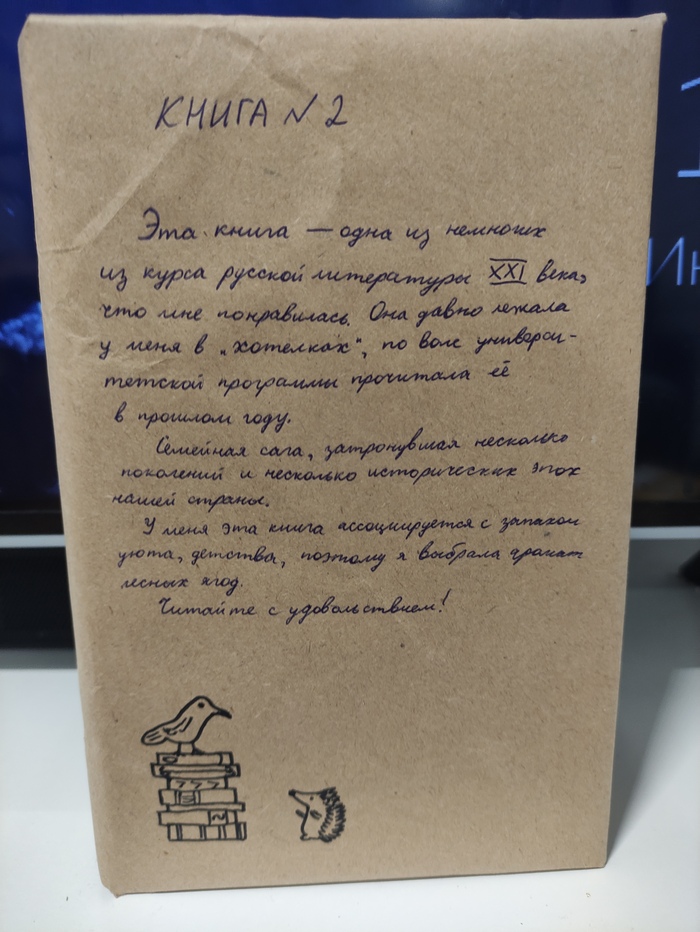 КНИГА N 2
Эта книга — одна из немногих
из курса русской литературы XXI века,
что мне понравилась. Она давно лежала
у меня в „хотелках", по воле универси-
тетской программы прочитала её
в прошлом году.
Семейная сага, затронувшая несколько
поколений и несколько исторических эпох
нашей страны.
У меня эта книга ассоциируется с запахом
уюта, детства, поэтому я выбрала аромат
лесных ягод.
Читайте с удовольствием!
1
Ин